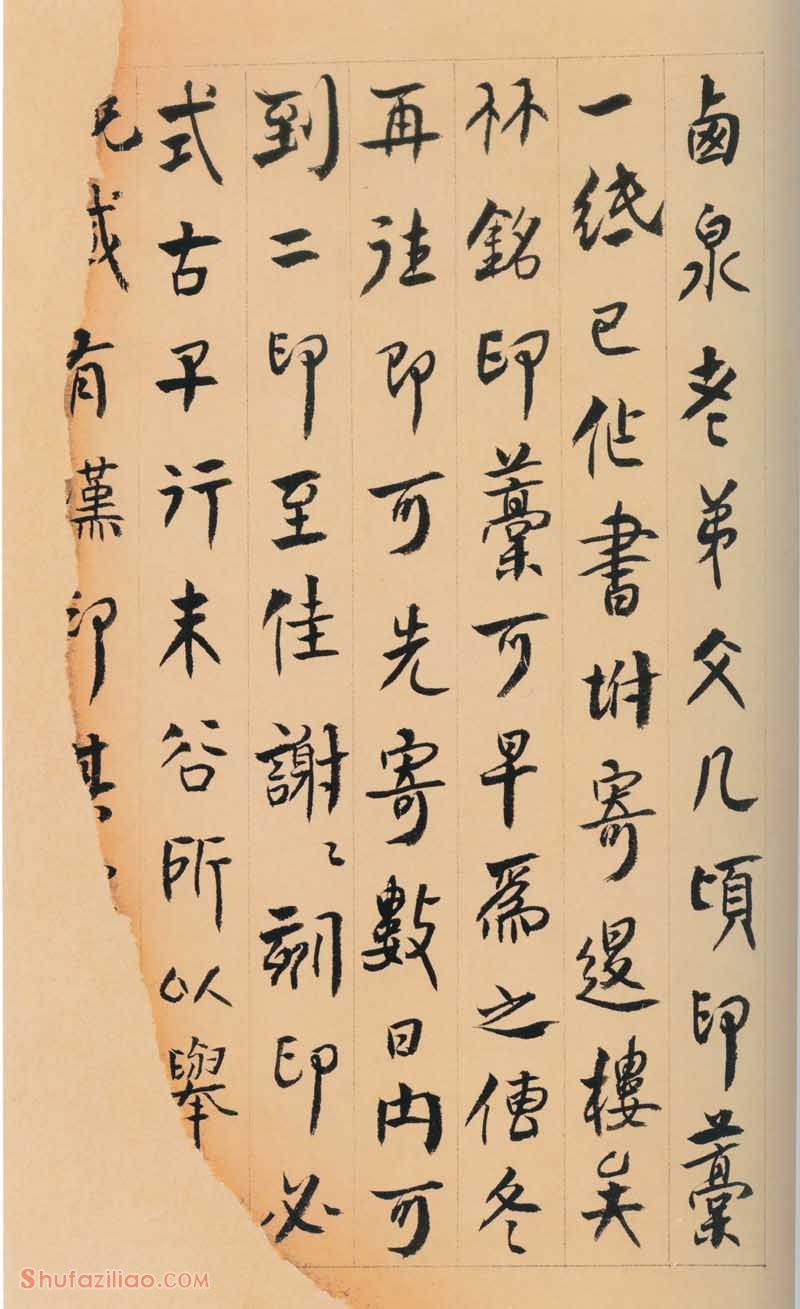 鹵泉老弟文几頃印藁
一紙已作書坿寄退樓矣
林銘印藁可早爲之傳冬
再往即可先寄數日内可
到二印至佳謝〻刻印必
式古早行未谷所以舉
或有漢印其
Shufaziliao.COM